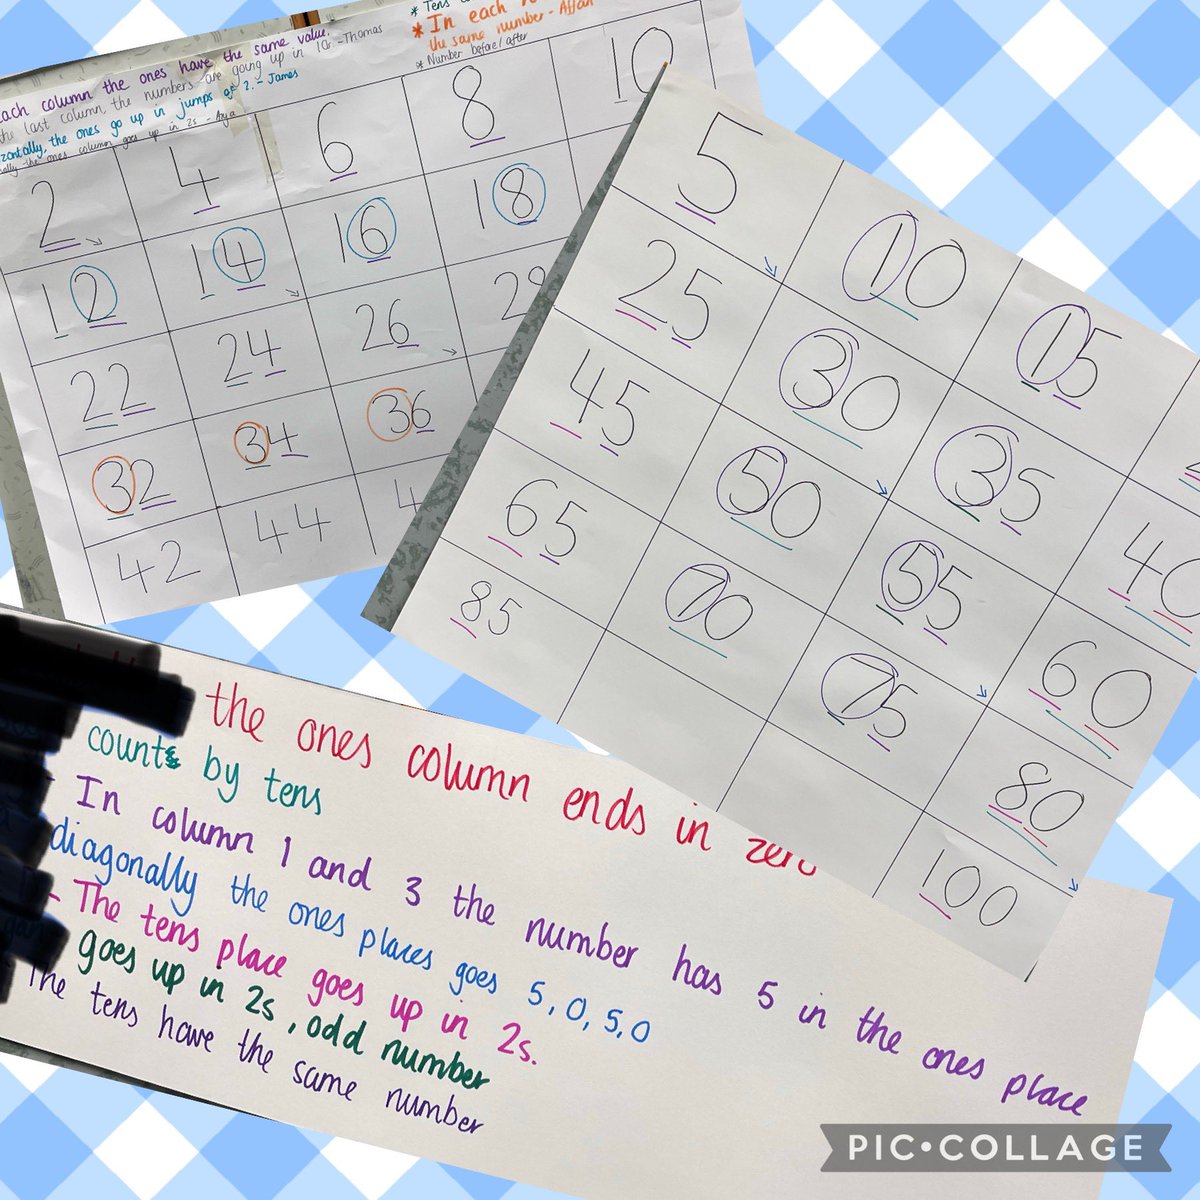 each column the ones have the same value.
the last column, the numbers are going up in 10s -Thomas
the ones go up in jumps of 2. - James
the ones column goes up in 2s - Arya
* Tens
* In each
the same number - Affan
* Number before/after
2 4 6 8 10
12 14 16 18
22 24 26 28
32 34 36
42 44 4
5 10 15
25 30 35 40
45 50 55 60
65 70 75 80
85 100
the ones column ends in zero
counts by tens
In column 1 and 3 the number has 5 in the ones place
diagonally the ones places goes 5, 0, 5, 0
- The tens place goes up in 2s.
goes up in 2s, odd number
The tens have the same number
PIC•COLLAGE